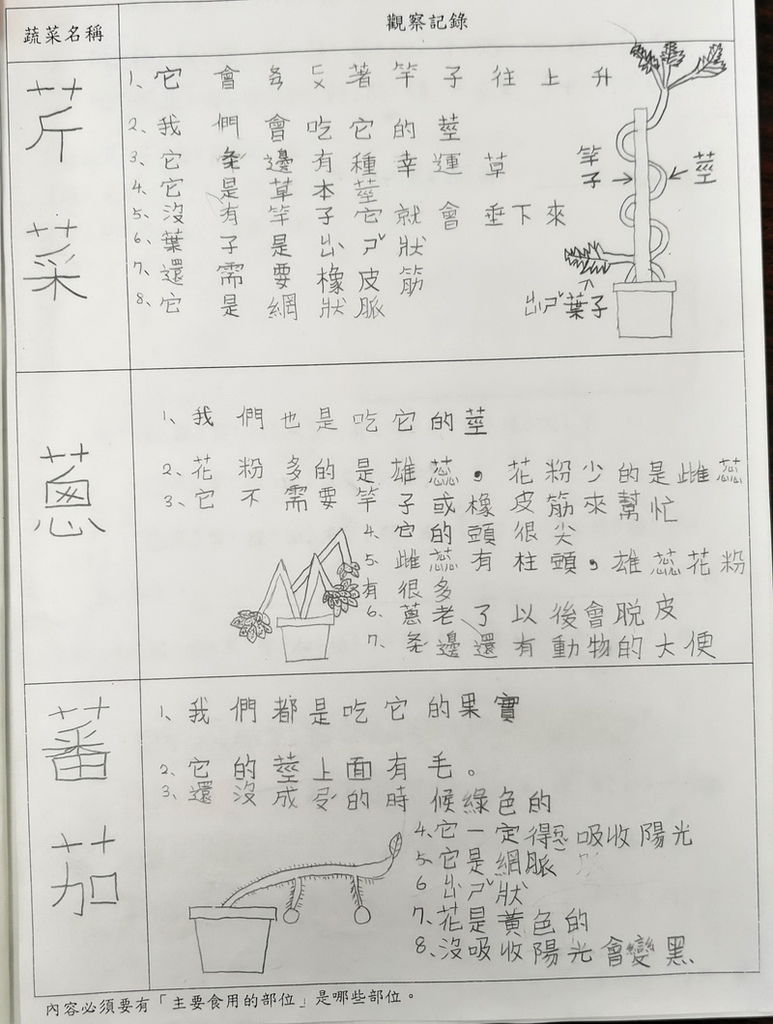 蔬菜名稱
觀察記錄
芹菜
1、它會ㄖㄠ著竿子往上升
2、我們會吃它的莖
3、它旁邊有種幸運草
4、它是草本莖
5、沒有竿子它就會垂下來
6、葉子是ㄐㄩˋ狀
7、還需要橡皮筋
8、它是網狀脈
竿子
莖
葉子
蔥
1、我們也是吃它的莖
2、花粉多的是雄蕊，花粉少的是雌蕊
3、它不需要竿子或橡皮筋來幫忙
4、它的頭很尖
5、雌蕊有柱頭，雄蕊花粉
有很多
6、蔥老了以後會脫皮
7、旁邊還有動物的大便
蕃茄
1、我們都是吃它的果實
2、它的莖上面有毛。
3、還沒成受的時候綠色的
4、它一定得吸收陽光
5、它是網脈
6 狀
7、花是黃色的
8、沒吸收陽光會變黑
內容必須要有「主要食用的部位」是哪些部位。